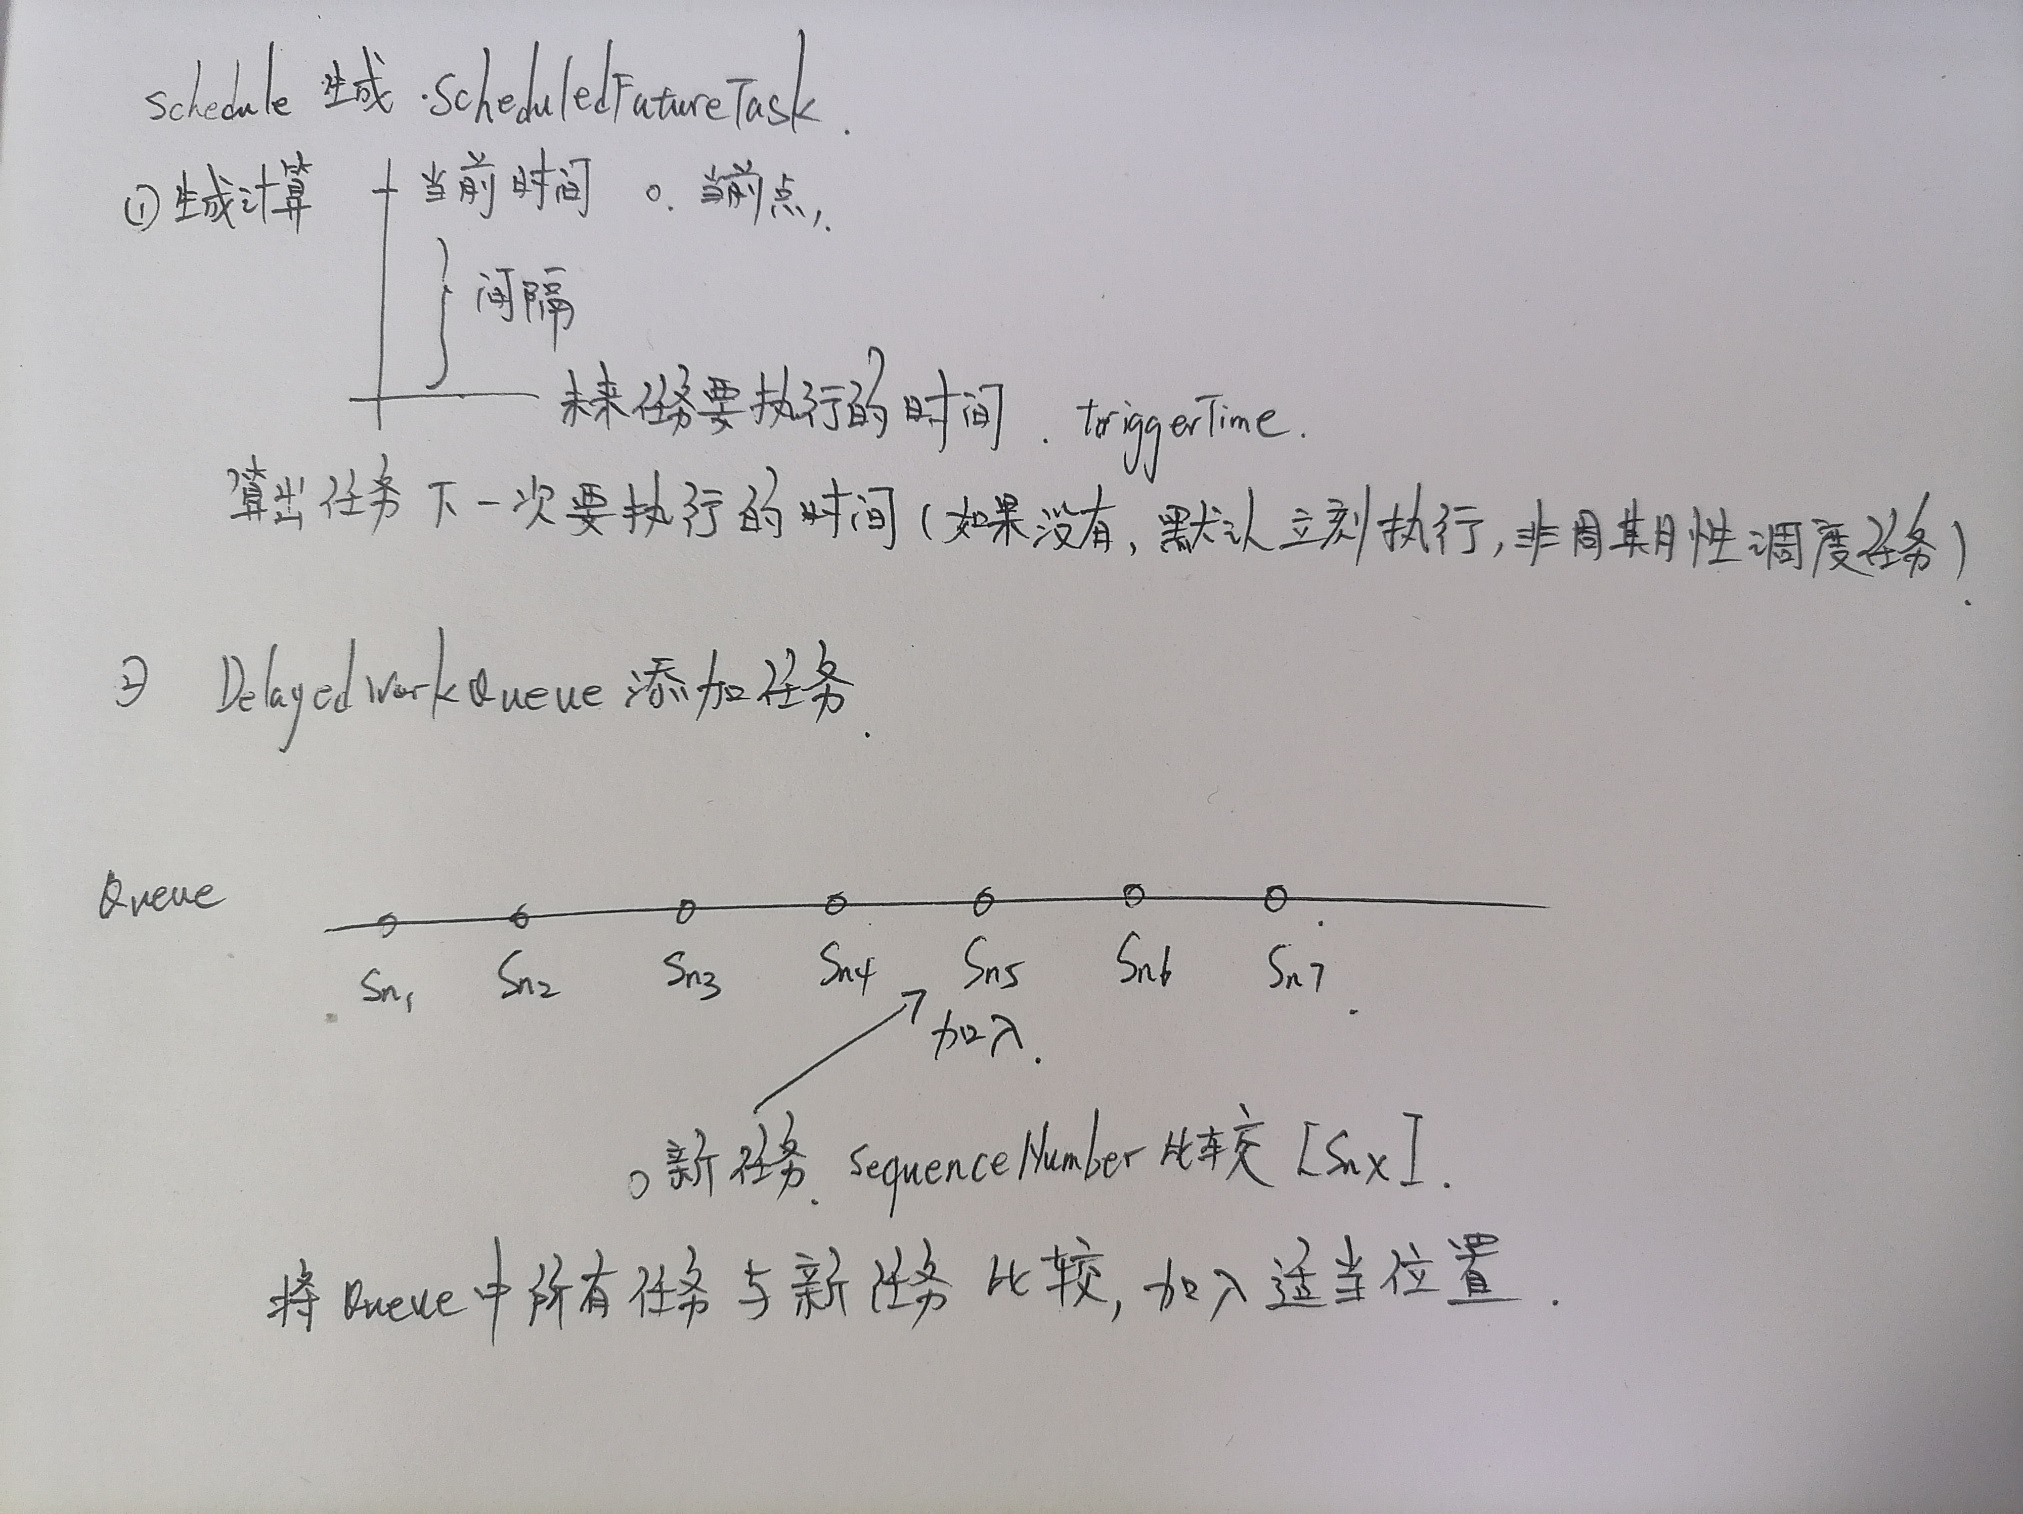 schedule 生成 ·ScheduledFutureTask.
① 生成计算 当前时间 o. 当前点,.
间隔
未来任务要执行的时间. triggerTime.
算出任务下一次要执行的时间(如果没有, 默认立刻执行, 非周期性调度任务).
② DelayedWorkQueue 添加任务.
Queue
Sn1 Sn2 Sn3 Sn4 Sn5 Sn6 Sn7.
加入.
新任务. sequenceNumber 比较 [Snx].
将Queue中所有任务与新任务比较, 加入适当位置.